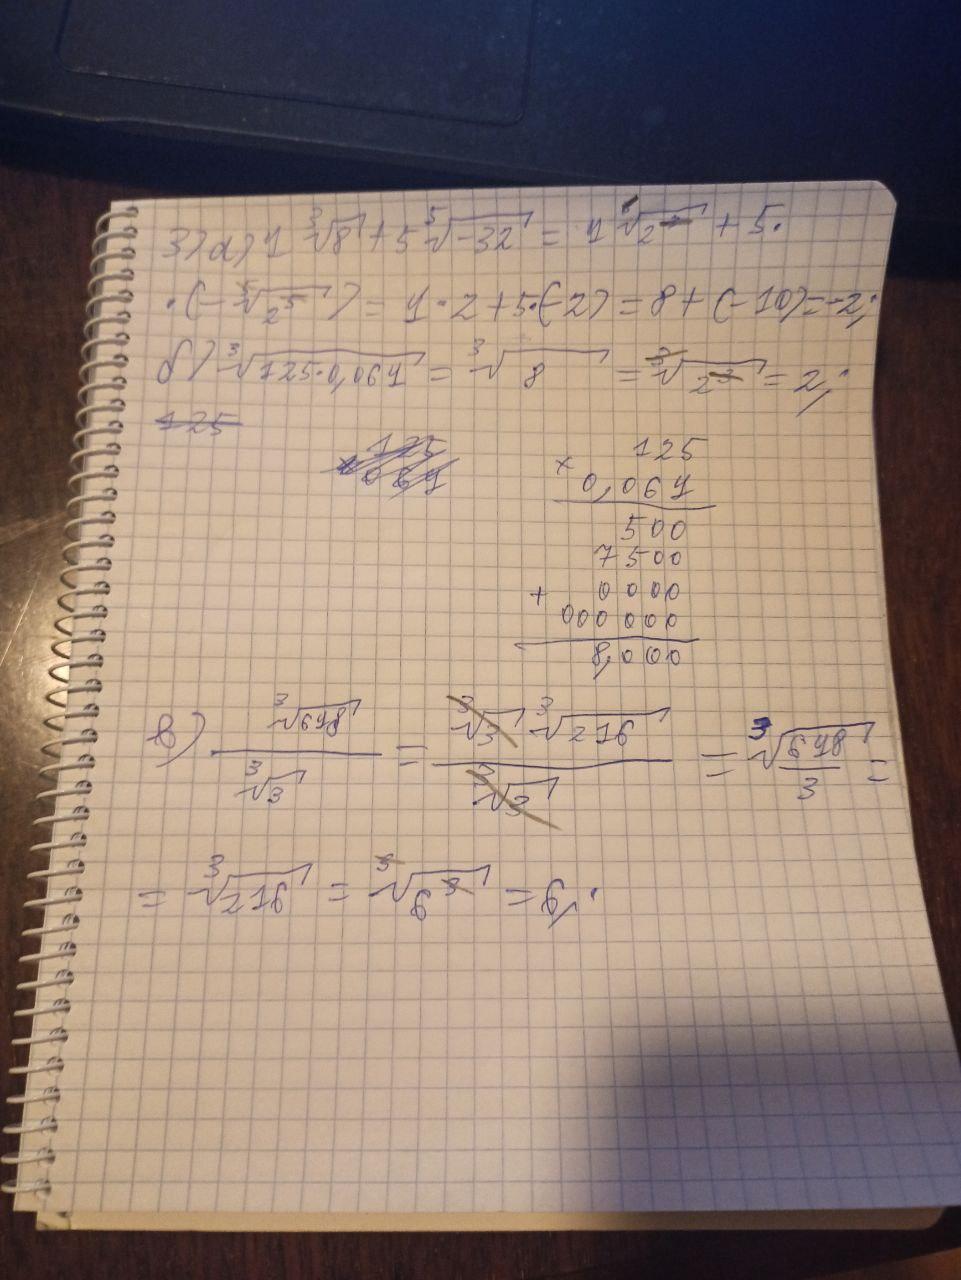 3) а) 4 ³√8 + 5 ⁵√-32 = 4 ³√2³ + 5·
·(-⁵√2⁵) = 4·2+5·(-2) = 8+(-10)=-2;
б) ³√125·0,064 = ³√8 = ³√2³ = 2;
125
125
0 64
125
× 0,064
500
7500
+ 0000
000 000
8,000
в) ³√648 / ³√3 = ³√3 ³√216 / ³√3 = ³√648/3 =
= ³√216 = ³√6³ = 6;